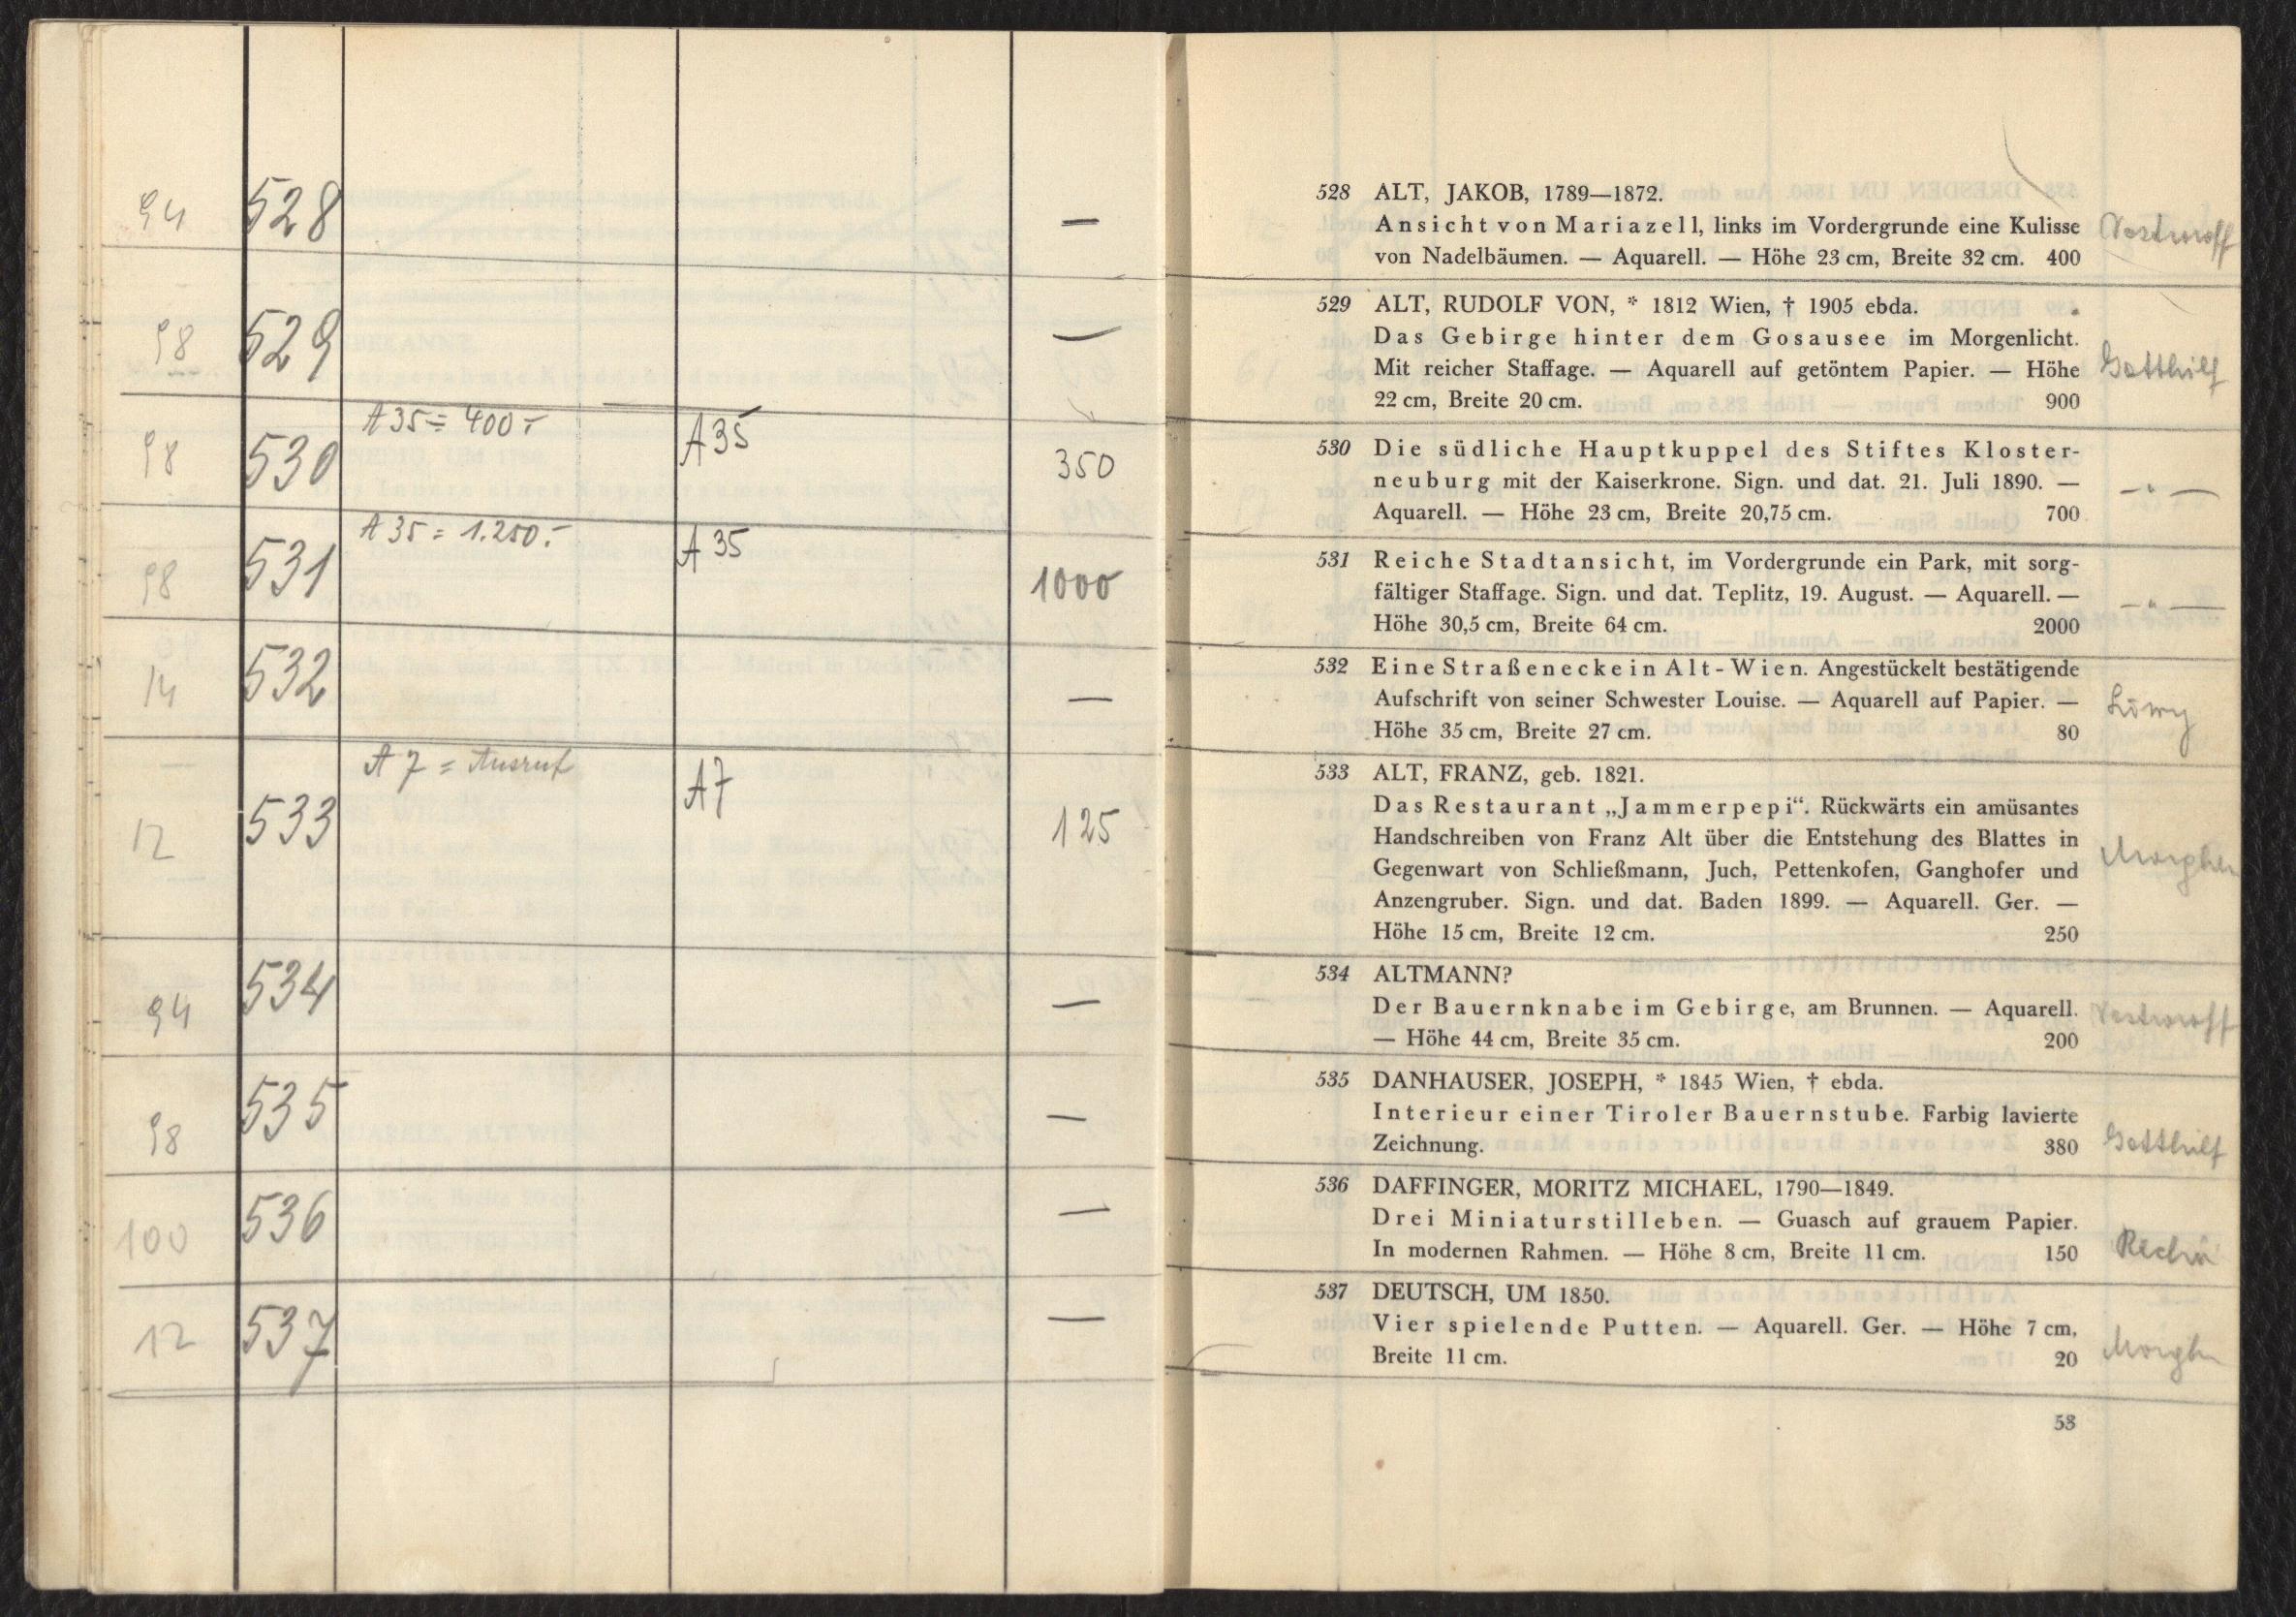 94 528 —
98 529 —
A 35 = 400.-
98 530 A 35 350
A 35 = 1.250.-
98 531 A 35 1000
14 532 —
A 7 = Ausruf
12 533 A 7 125
94 534 —
98 535 —
100 536 —
12 537 —
528 ALT, JAKOB, 1789—1872.
Ansicht von Mariazell, links im Vordergrunde eine Kulisse
von Nadelbäumen. — Aquarell. — Höhe 23 cm, Breite 32 cm. 400
529 ALT, RUDOLF VON, * 1812 Wien, † 1905 ebda.
Das Gebirge hinter dem Gosausee im Morgenlicht.
Mit reicher Staffage. — Aquarell auf getöntem Papier. — Höhe Gotthilf
22 cm, Breite 20 cm. 900
530 Die südliche Hauptkuppel des Stiftes Kloster-
neuburg mit der Kaiserkrone. Sign. und dat. 21. Juli 1890. — —"—
Aquarell. — Höhe 23 cm, Breite 20,75 cm. 700
531 Reiche Stadtansicht, im Vordergrunde ein Park, mit sorg-
fältiger Staffage. Sign. und dat. Teplitz, 19. August. — Aquarell. — —"—
Höhe 30,5 cm, Breite 64 cm. 2000
532 Eine Straßenecke in Alt-Wien. Angestückelt bestätigende
Aufschrift von seiner Schwester Louise. — Aquarell auf Papier. — Löwy
Höhe 35 cm, Breite 27 cm. 80
533 ALT, FRANZ, geb. 1821.
Das Restaurant „Jammerpepi“. Rückwärts ein amüsantes
Handschreiben von Franz Alt über die Entstehung des Blattes in
Gegenwart von Schließmann, Juch, Pettenkofen, Ganghofer und
Anzengruber. Sign. und dat. Baden 1899. — Aquarell. Ger. —
Höhe 15 cm, Breite 12 cm. 250
534 ALTMANN?
Der Bauernknabe im Gebirge, am Brunnen. — Aquarell.
— Höhe 44 cm, Breite 35 cm. 200
535 DANHAUSER, JOSEPH, * 1845 Wien, † ebda.
Interieur einer Tiroler Bauernstube. Farbig lavierte
Zeichnung. 380 Gotthilf
536 DAFFINGER, MORITZ MICHAEL, 1790—1849.
Drei Miniaturstilleben. — Guasch auf grauem Papier.
In modernen Rahmen. — Höhe 8 cm, Breite 11 cm. 150
537 DEUTSCH, UM 1850.
Vier spielende Putten. — Aquarell. Ger. — Höhe 7 cm,
Breite 11 cm. 20
53